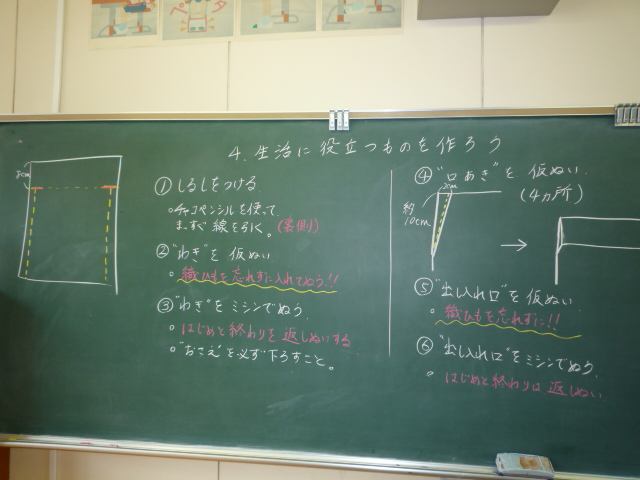 4. 生活に役立つものを作ろう
8cm
① しるしをつける.
○チャコペンシルを使って
まっすぐ線を引く。(裏側)
② "わき" を 仮ぬい
○ 織ひもを忘れずに入れてぬう!!
③ "わき" を ミシンでぬう.
○ はじめと終わりを 返しぬいする
○ "おさえ" を必ず下ろすこと。
④ "口あき" を 仮ぬい.
(4ヵ所)
2cm
約
10cm
→
⑤ "出し入れ口" を 仮ぬい
○ 織ひもを忘れずに!!
⑥ "出し入れ口" をミシンでぬう.
○ はじめと終わりは 返しぬい